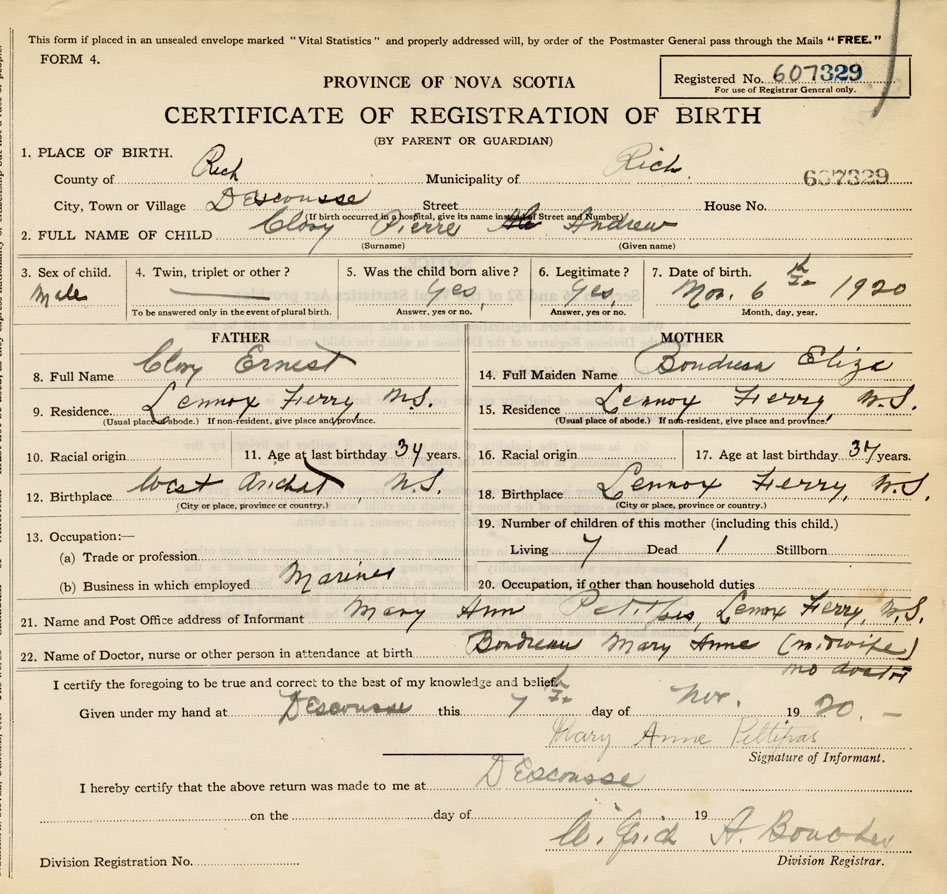 This form if placed in an unsealed envelope marked "Vital Statistics" and properly addressed will, by order of the Postmaster General pass through the Mails "FREE."
FORM 4.
Registered No. 607329
For use of Registrar General only.
PROVINCE OF NOVA SCOTIA
CERTIFICATE OF REGISTRATION OF BIRTH
(BY PARENT OR GUARDIAN)
1. PLACE OF BIRTH.
County of Rich Municipality of Rich.
607329
City, Town or Village DEscousse Street House No.
(If birth occurred in a hospital, give its name instead of Street and Number)
2. FULL NAME OF CHILD Clory Pierre Andrew
(Surname) (Given name)
3. Sex of child. 4. Twin, triplet or other? 5. Was the child born alive? 6. Legitimate? 7. Date of birth.
Male Yes Yes, Nov. 6th 1920
To be answered only in the event of plural birth. Answer, yes or no. Answer, yes or no. Month, day, year.
FATHER MOTHER
8. Full Name Clory Ernest 14. Full Maiden Name Eliza
9. Residence. Lennox Ferry, N.S. 15. Residence Lennox Ferry, N.S.
(Usual place of abode.) If non-resident, give place and province. (Usual place of abode.) If non-resident, give place and province.
10. Racial origin 11. Age at last birthday 34 years. 16. Racial origin 17. Age at last birthday 37 years.
12. Birthplace West Arichat, N.S. 18. Birthplace Lennox Ferry, N.S.
(City or place, province or country.) (City or place, province or country.)
13. Occupation:— 19. Number of children of this mother (including this child.)
(a) Trade or profession Living 7 Dead 1 Stillborn
(b) Business in which employed Mariner 20. Occupation, if other than household duties
21. Name and Post Office address of Informant Mary Ann Petitpas, Lenox Ferry, N.S.
22. Name of Doctor, nurse or other person in attendance at birth. Boudreau Mary Anne (midwife)
no doctor
I certify the foregoing to be true and correct to the best of my knowledge and belief.
Given under my hand at DEscousse this 7th day of Nov. 1920.—
Mary Anne Pettipas
Signature of Informant.
I hereby certify that the above return was made to me at DEscousse
on the day of 19
A. Boucher
Division Registration No. Division Registrar.